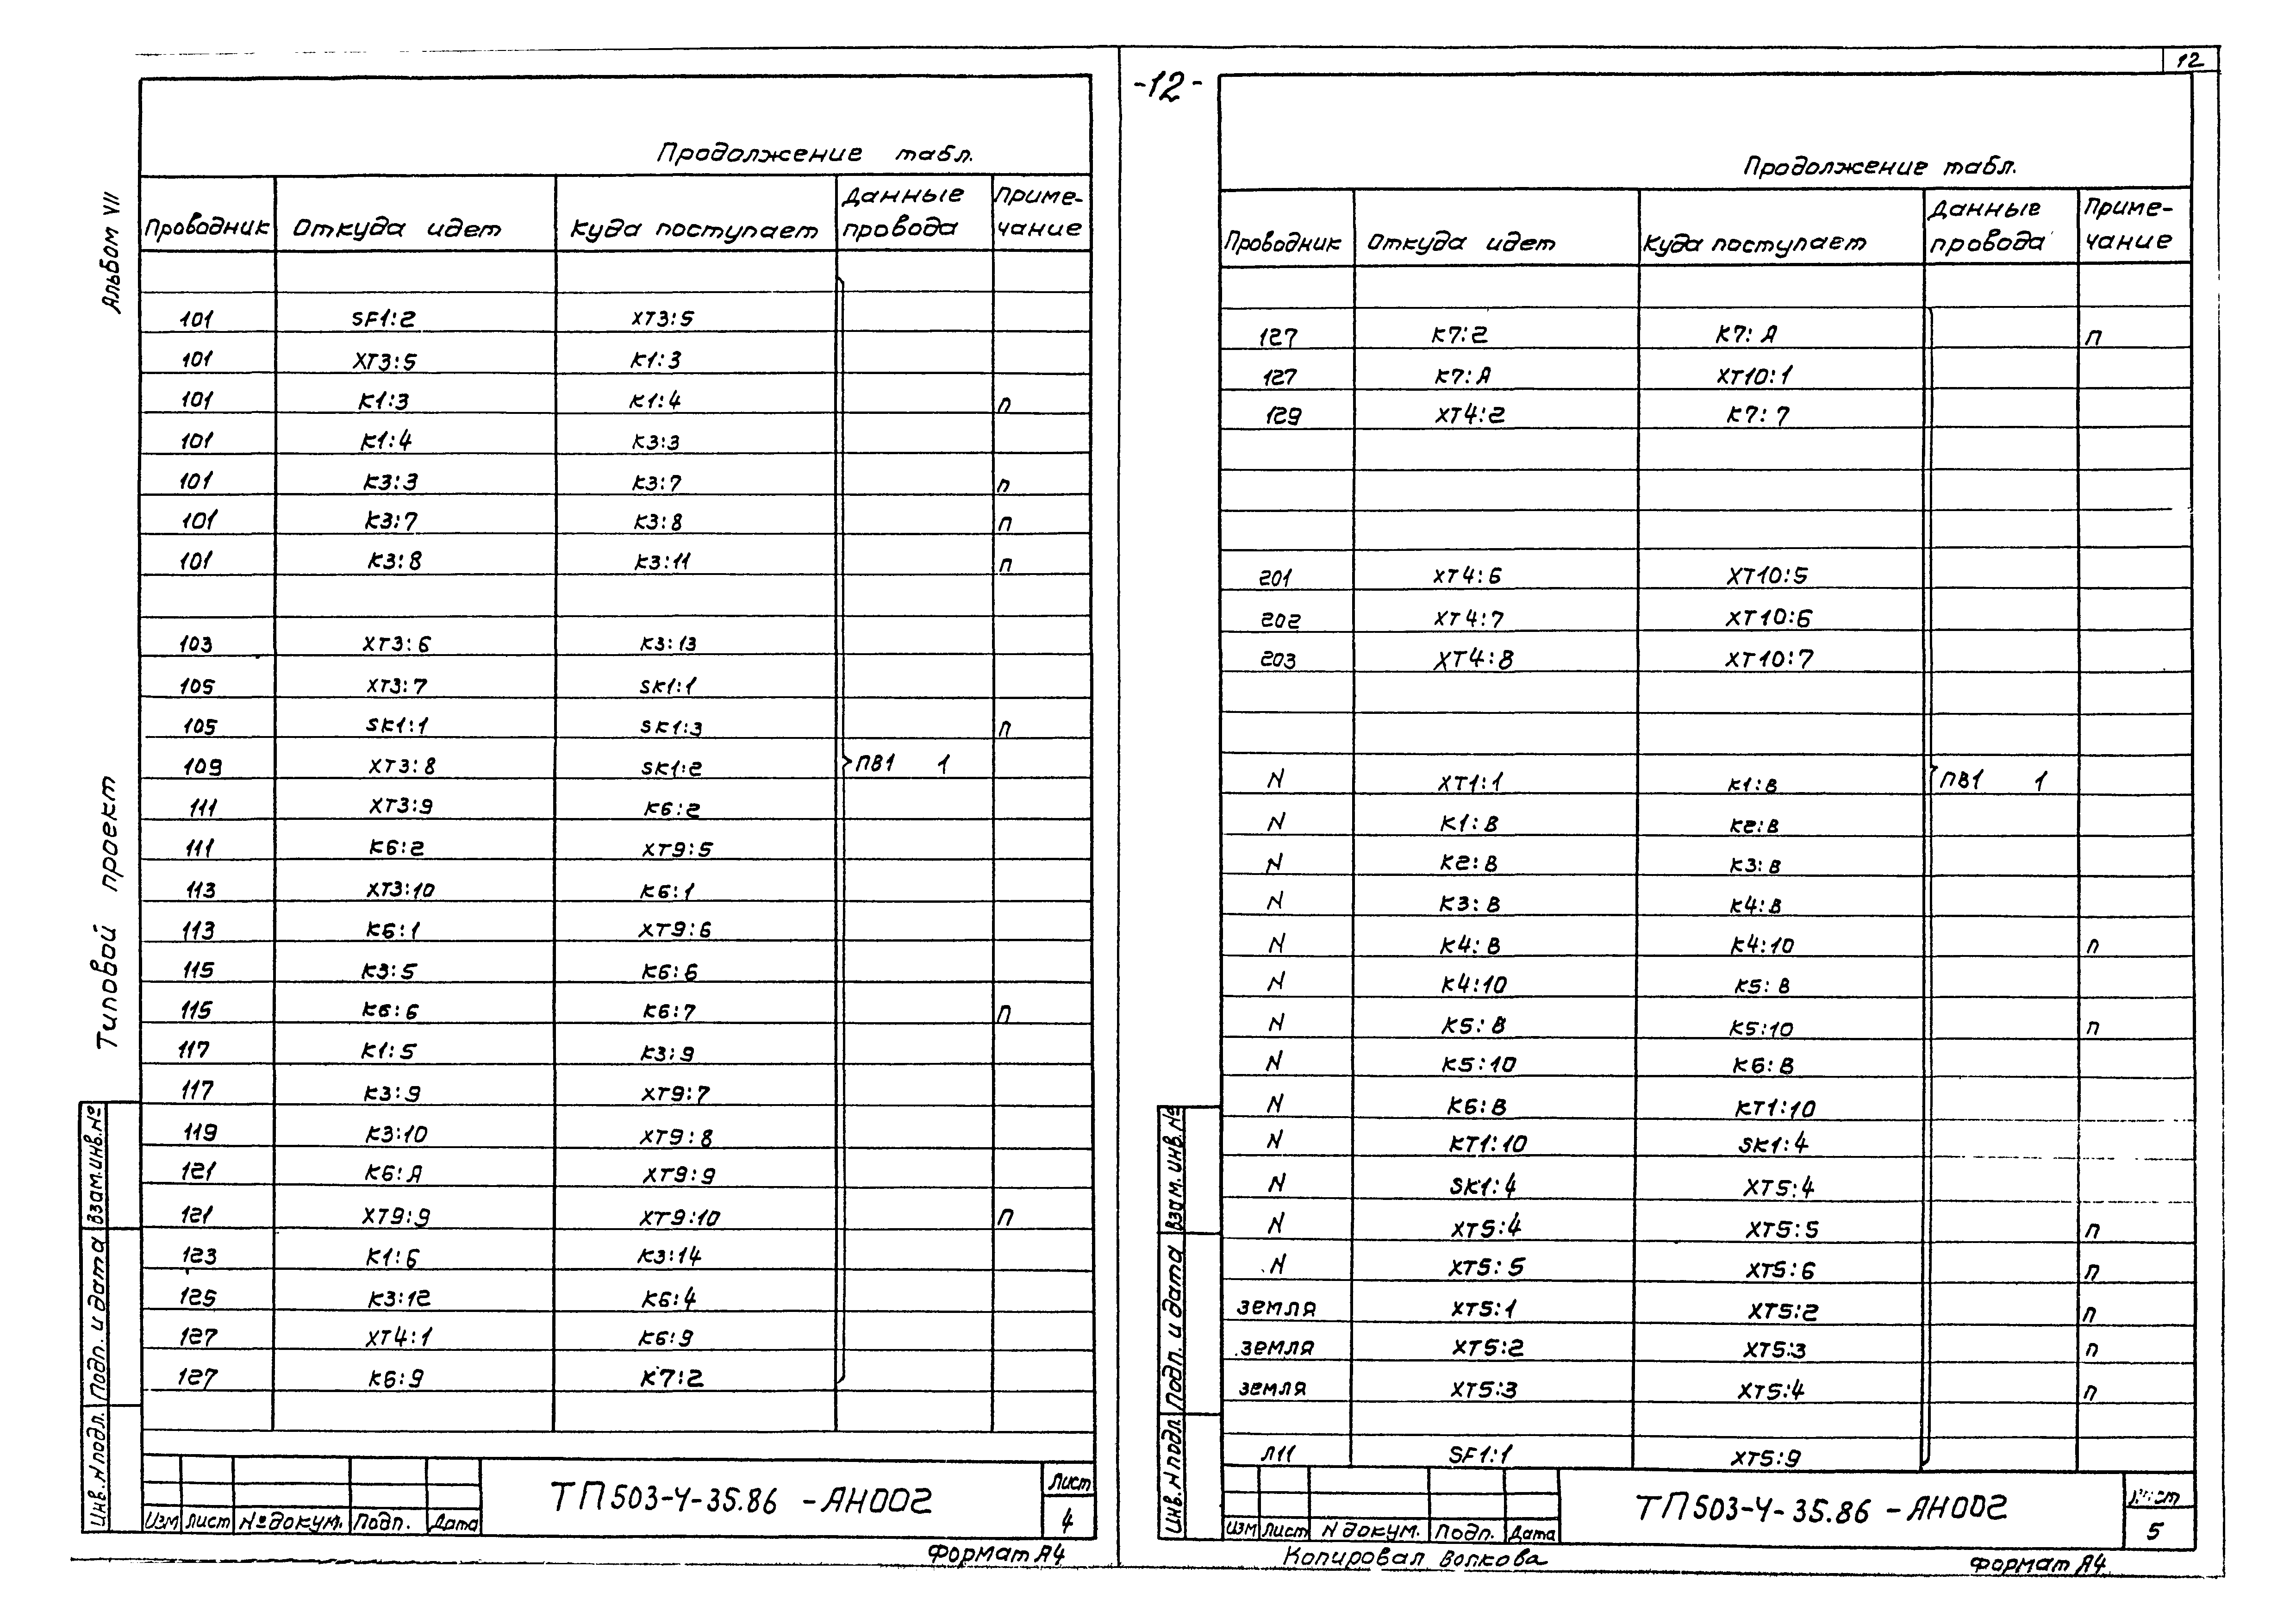 12
-12-
Альбом VII
Типовой проект
Продолжение табл.
Проводник Откуда идет Куда поступает Данные провода Приме-чание
101 SF1:2 XT3:5
101 XT3:5 K1:3
101 K1:3 K1:4 п
101 K1:4 K3:3
101 K3:3 K3:7 п
101 K3:7 K3:8 п
101 K3:8 K3:11 п
103 XT3:6 K3:13
105 XT3:7 SK1:1
105 SK1:1 SK1:3 п
109 XT3:8 SK1:2 ПВ1 1
111 XT3:9 K6:2
111 K6:2 XT9:5
113 XT3:10 K6:1
113 K6:1 XT9:6
115 K3:5 K6:6
115 K6:6 K6:7 п
117 K1:5 K3:9
117 K3:9 XT9:7
119 K3:10 XT9:8
121 K6:A XT9:9
121 XT9:9 XT9:10 п
123 K1:6 K3:14
125 K3:12 K6:4
127 XT4:1 K6:9
127 K6:9 K7:2
Инв.N подл. Подп. и дата Взам.инв.№
Изм Лист №докум. Подп. Дата
ТП503-4-35.86 -АН002
Лист
4
Формат А4
Продолжение табл.
Проводник Откуда идет Куда поступает Данные провода Приме-чание
127 K7:2 K7:A п
127 K7:A XT10:1
129 XT4:2 K7:7
201 XT4:6 XT10:5
202 XT4:7 XT10:6
203 XT4:8 XT10:7
N XT1:1 K1:B ПВ1 1
N K1:B K2:B
N K2:B K3:B
N K3:B K4:B
N K4:B K4:10 п
N K4:10 K5:B
N K5:B K5:10 п
N K5:10 K6:B
N K6:B KT1:10
N KT1:10 SK1:4
N SK1:4 XT5:4
N XT5:4 XT5:5 п
N XT5:5 XT5:6 п
земля XT5:1 XT5:2 п
земля XT5:2 XT5:3 п
земля XT5:3 XT5:4 п
Л11 SF1:1 XT5:9
Инв.N подл. Подп. и дата Взам.инв.№
Изм Лист N докум. Подп. Дата
ТП503-4-35.86 -АН002
Лист
5
Копировал Волкова
Формат А4